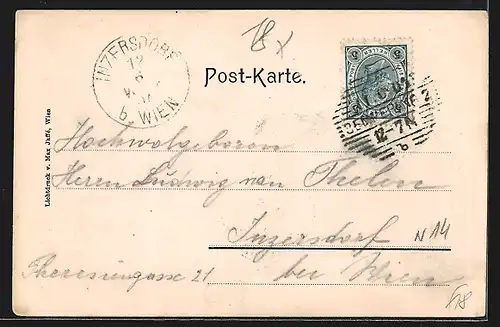 INZERSDORF
12
6
b. WIEN
Post-Karte.
5 5
12-7N
Lichtdruck v. Max Jaffé, Wien
Hochwolgeboren
Herrn Ludwig van Thelen
Inzersdorf
N 14
Theresiengasse 21
bei Wien